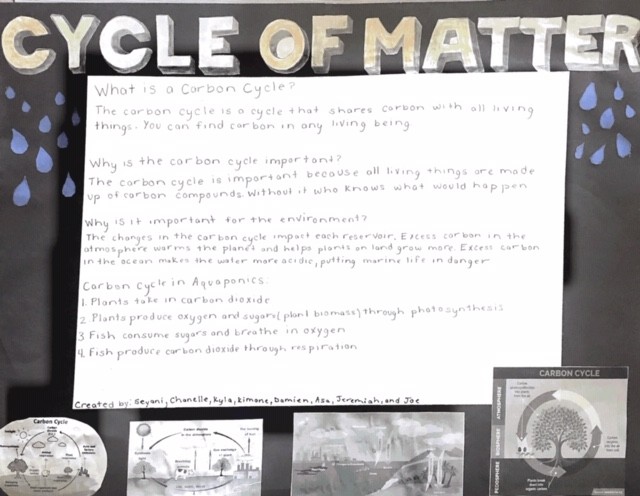 CYCLE OF MATTER
What is a Carbon Cycle?
The carbon cycle is a cycle that shares carbon with all living
things. You can find carbon in any living being
Why is the carbon cycle important?
The carbon cycle is important because all living things are made
up of carbon compounds. Without it who knows what would happen
Why is it important for the environment?
The changes in the carbon cycle impact each reservoir. Excess carbon in the
atmosphere warms the planet and helps plants on land grow more. Excess carbon
in the ocean makes the water more acidic, putting marine life in danger
Carbon cycle in Aquaponics:
1. Plants take in carbon dioxide
2. Plants produce oxygen and sugars (plant biomass) through photosynthesis
3 Fish consume sugars and breathe in oxygen
4. Fish produce carbon dioxide through respiration
Created by: Geyani, Chanelle, Kyla, Kimone, Damien, Asa, Jeremiah, and Joe
Carbon Cycle
CARBON CYCLE
ATMOSPHERE
BIOSPHERE
PEDOSPHERE